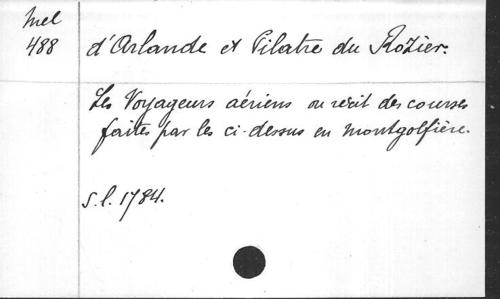 Mel
488
d'Arlande et Pilatre du Rozier.
Les Voyageurs aériens ou récit des courses
faites par les ci-dessus en montgolfière.
s.l. 1784.